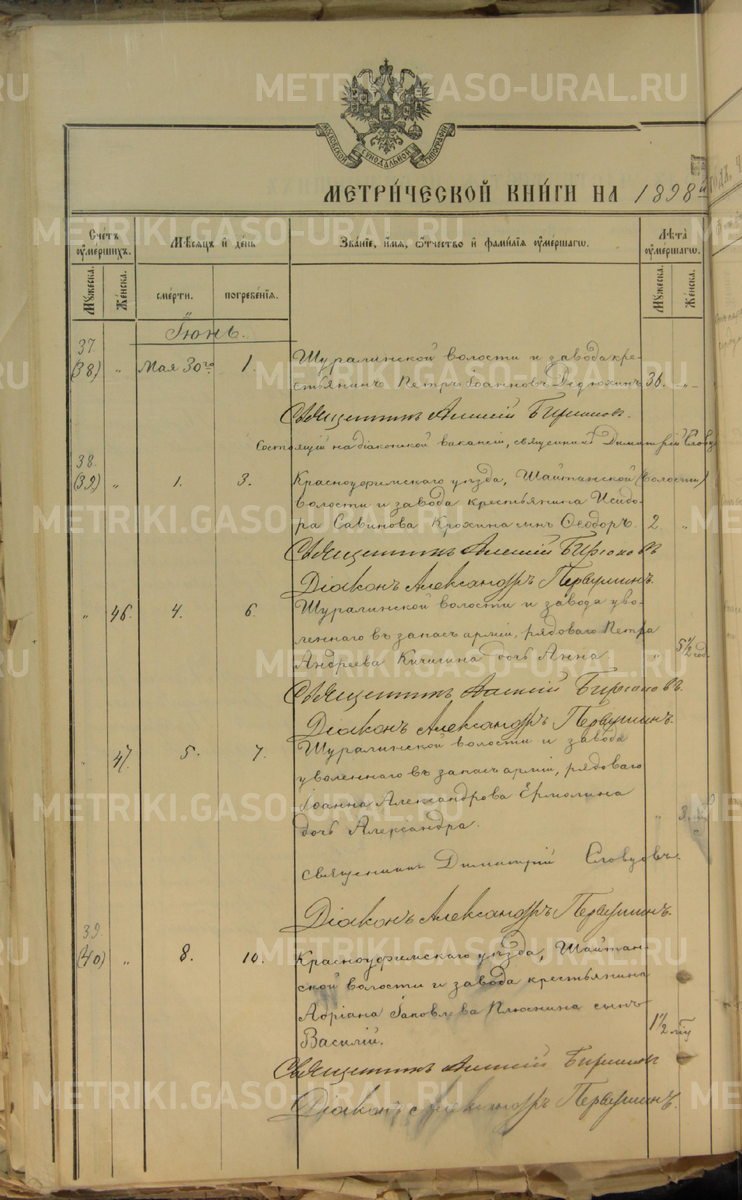 МОСКОВСКОЙ СѴНОДАЛЬНОЙ ТИПОГРАФІИ
МЕТРИ́ЧЕСКОЙ КНИ́ГИ НА 1898й
Счетъ ᲂумершихъ.
Мѣсяцъ и день
Званіе, имя, отчество и фамилія ᲂумершагѡ.
Лѣта ᲂумершагѡ.
Мужеска. Женска.
смерти. погребенія.
Мужеска. Женска.
Іюнь.
37 (38) " Мая 30го 1. Шуралинской волости и завода кре-
стьянинъ Петръ Іоанновъ Дедюхинъ 36. "
Священникъ Алексій Бирюковъ
Состоящій на діаконской вакансіи, священникъ Димитрій Словцовъ
38 (39) " 1. 3. Красноуфимскаго уѣзда, Шайтанской (волости)
волости и завода крестьянина Исидо-
ра Савинова Крохина сынъ Ѳеодоръ 2 "
Священникъ Алексій Бирюковъ
Діаконъ Александръ Первушинъ.
" 46. 4. 6. Шуралинской волости и завода уво-
леннаго въ запасъ арміи, рядоваго Петра
Андреева Кичигина дочь Анна " 5½ год.
Священникъ Алексій Бирюковъ.
Діаконъ Александръ Первушинъ
" 47. 5. 7. Шуралинской волости и завода
уволеннаго въ запасъ арміи, рядоваго
Іоанна Александрова Ермолина
дочь Александра. " 3.
священникъ Димитрій Словцовъ
Діаконъ Александръ Первушинъ.
39 (40) " 8. 10. Красноуфимскаго уѣзда, Шайтан-
ской волости и завода крестьянина
Адріана Іаковлева Плюснина сынъ
Василій. 1½
Священникъ Алексій Бирюковъ
Діаконъ Александръ Первушинъ.
METRIKI.GASO-URAL.RU